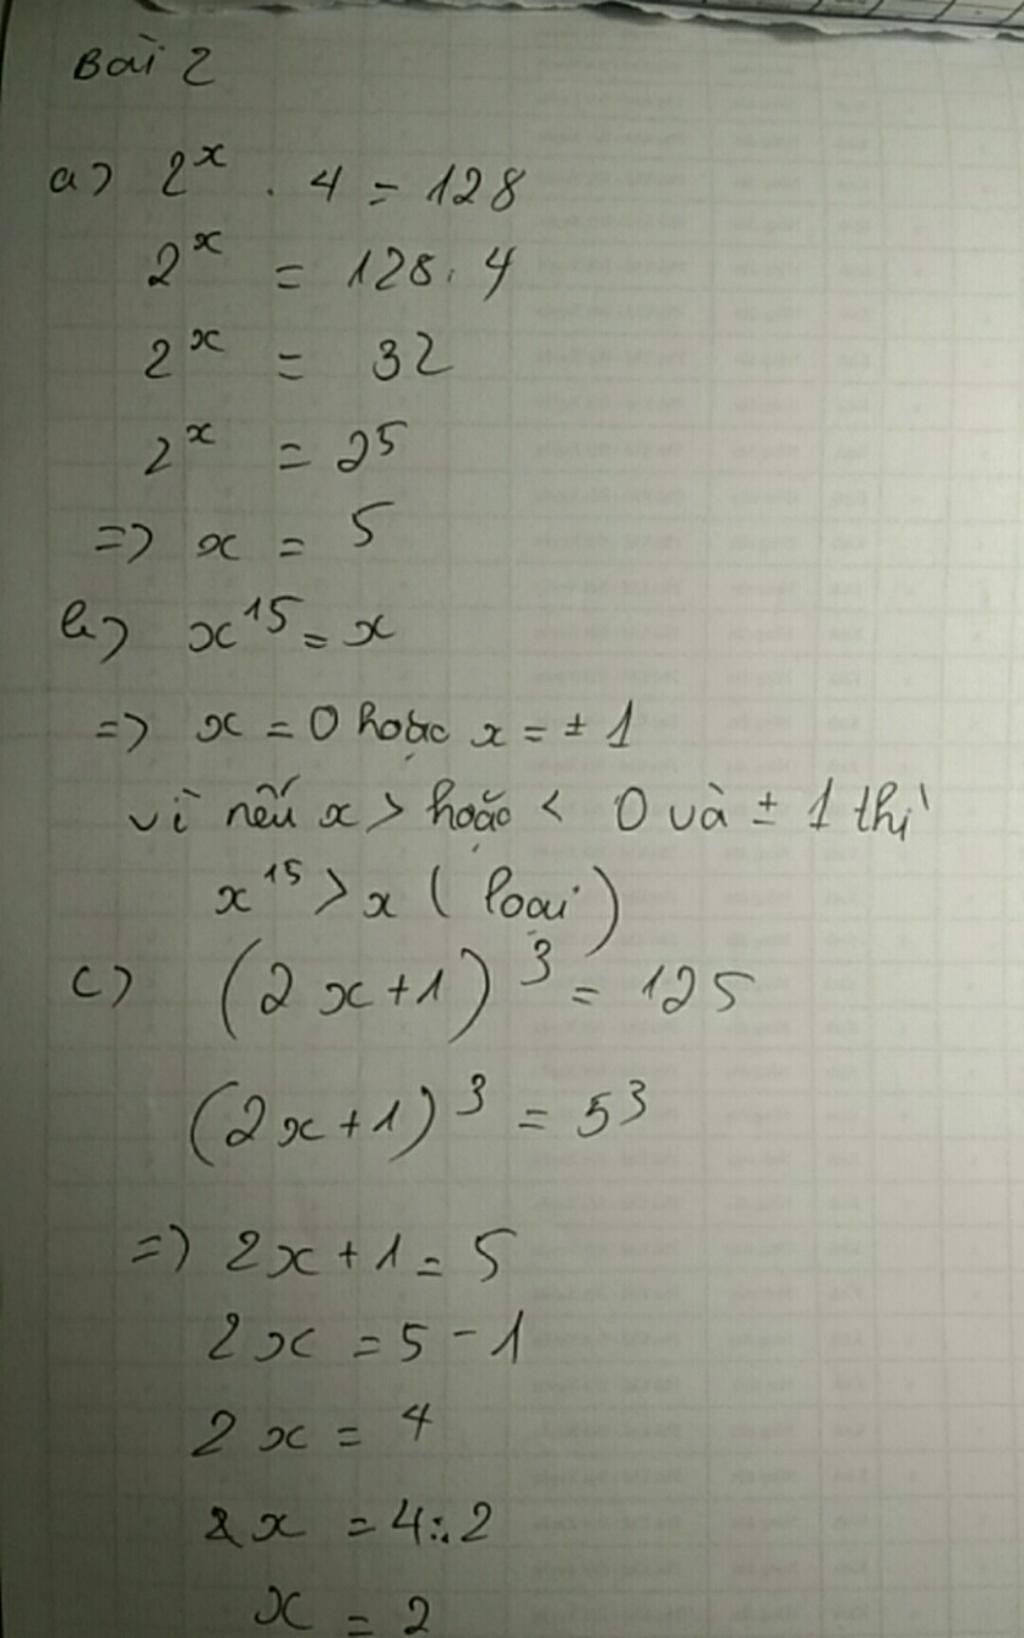 Bài 2
a) 2^x . 4 = 128
2^x = 128 : 4
2^x = 32
2^x = 2^5
=> x = 5
b) x^15 = x
=> x = 0 hoặc x = ± 1
vì nếu x > hoặc < 0 và ± 1 thì
x^15 > x ( loại )
c) (2x+1)^3 = 125
(2x+1)^3 = 5^3
=> 2x+1 = 5
2x = 5 - 1
2x = 4
x = 4:2
x = 2